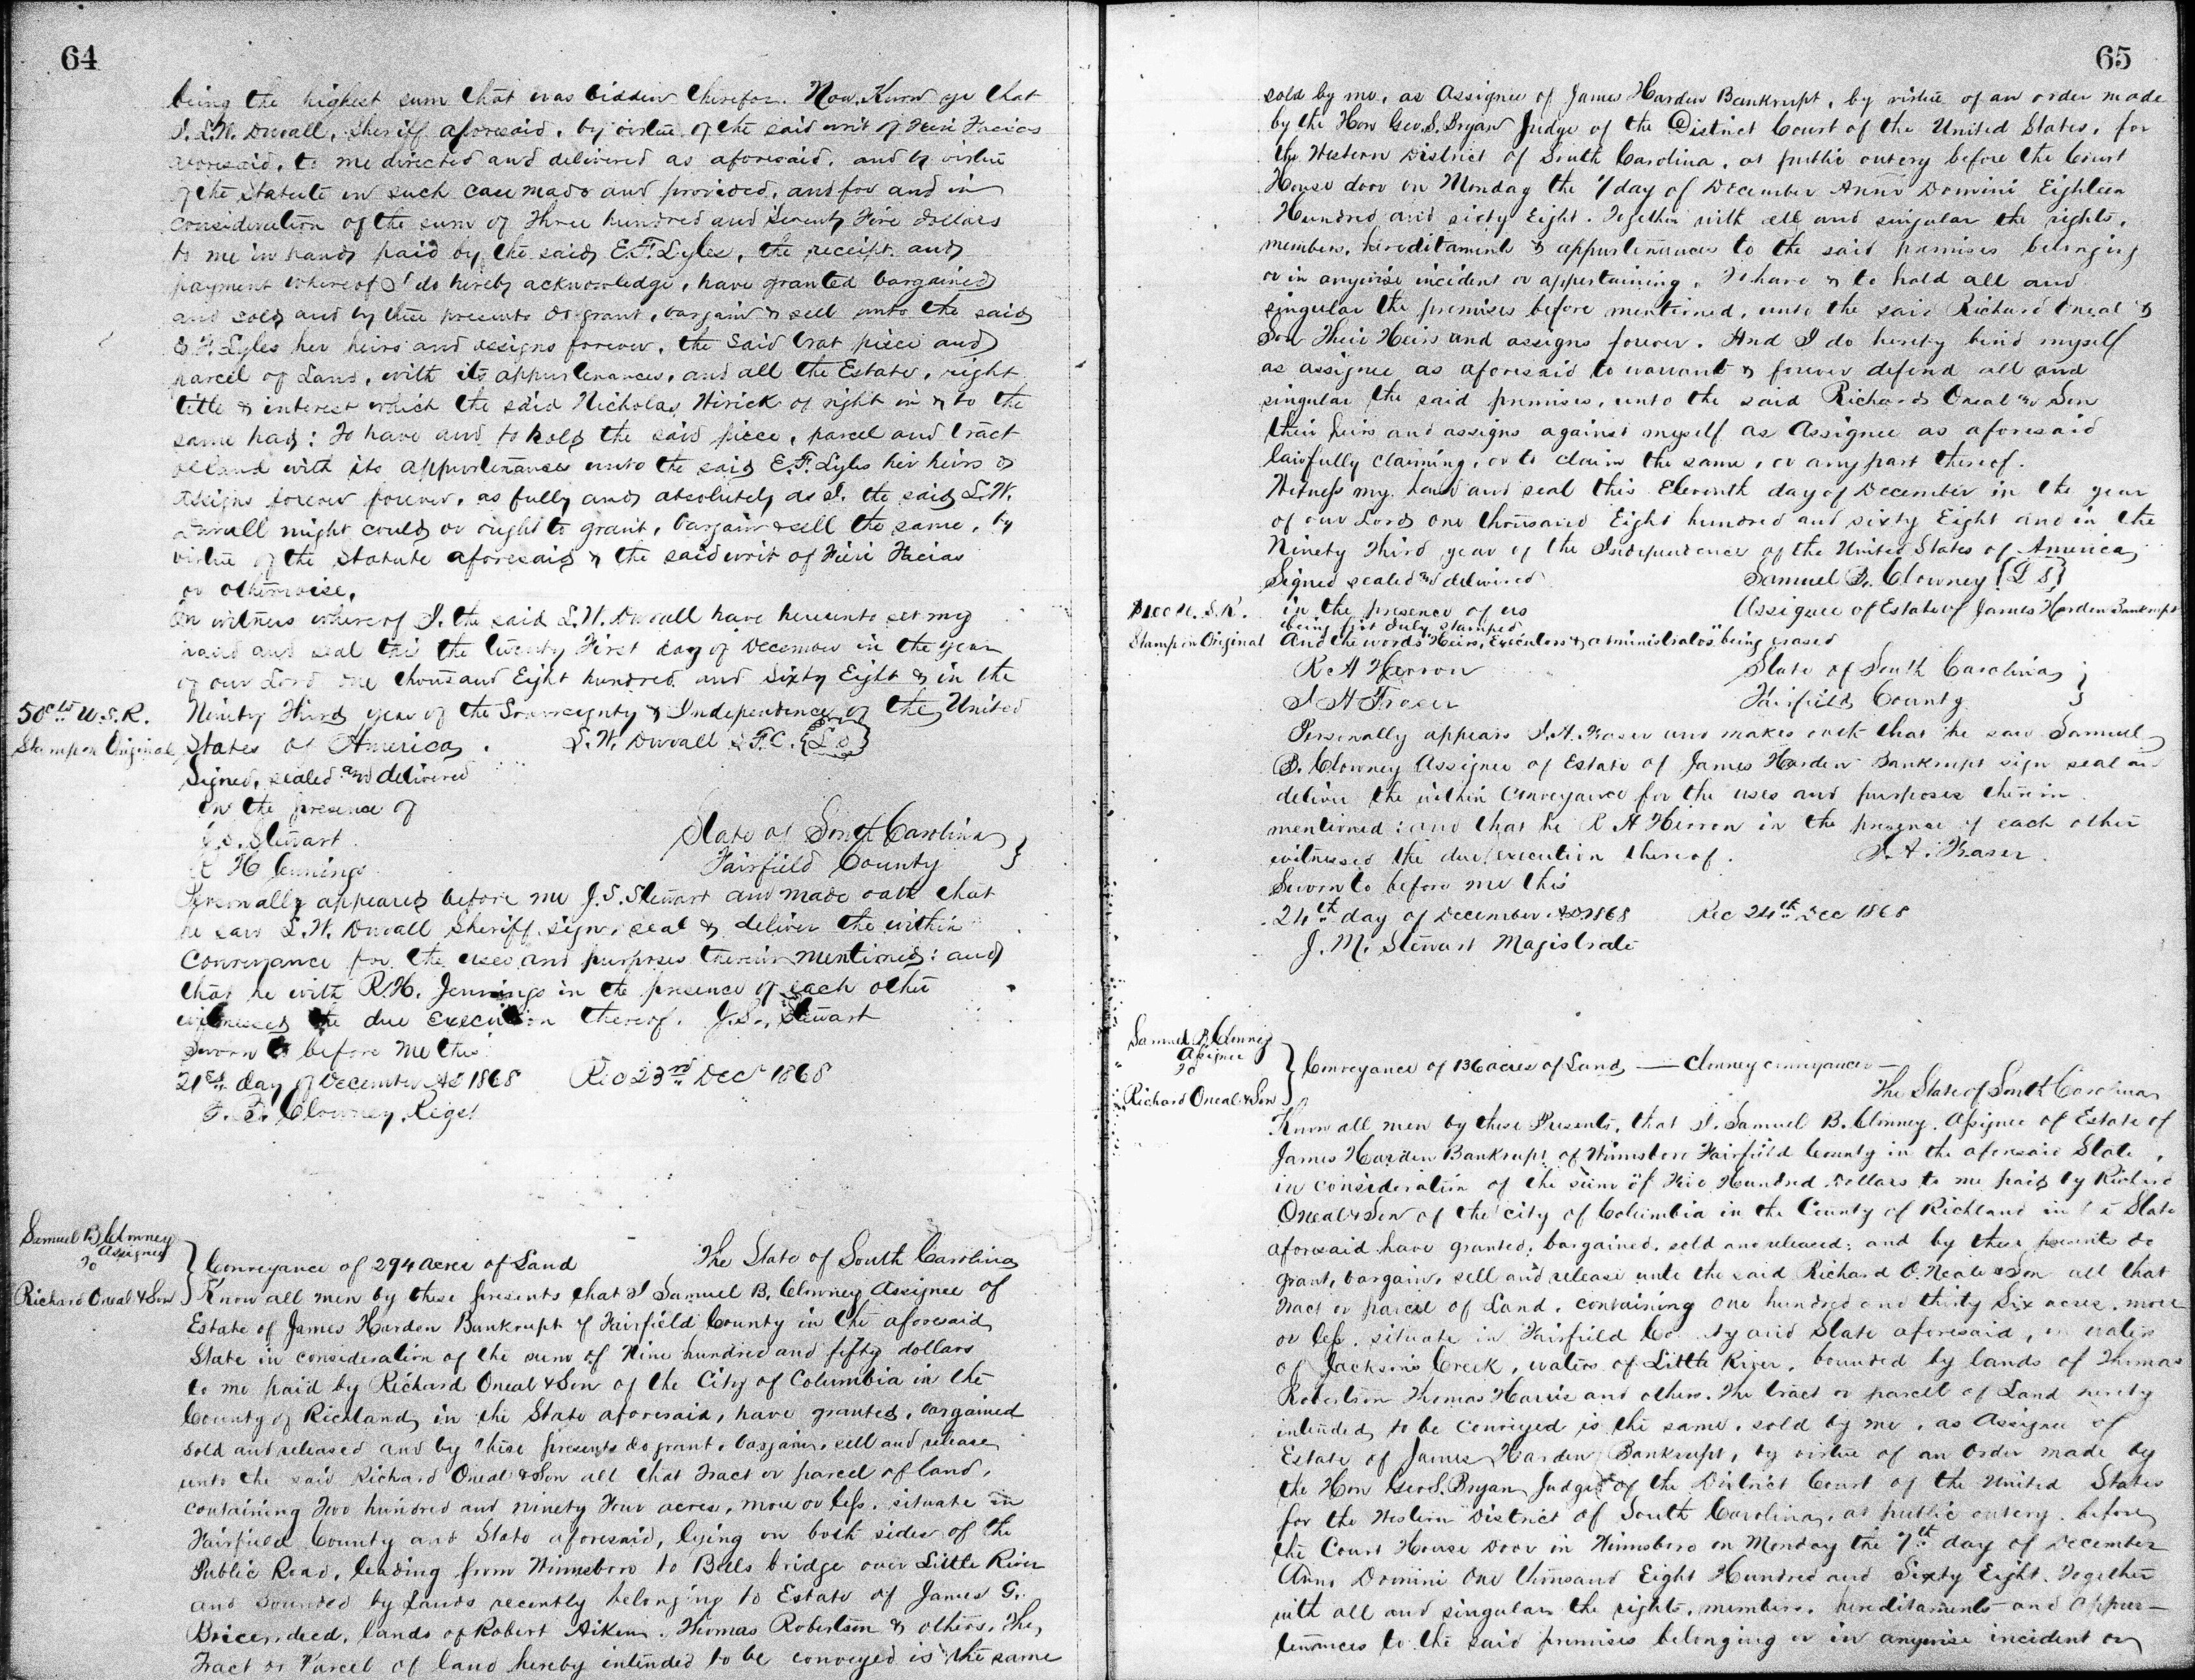 64
being the highest sum that was bidden therefor. Now Know ye that
I. L.W. Duvall, Sheriff aforesaid, by virtue of the said writ of Fieri Facias
aforesaid, to me directed and delivered as aforesaid, and by virtue
of the Statute in such case made and provided, and for and in
consideration of the sum of Three hundred and Seventy Five dollars
to me in hand paid by the said E.F. Lyles, the receipt and
payment whereof I do hereby acknowledge, have granted bargained
and sold and by these presents do grant, bargain & sell unto the said
E.F. Lyles her heirs and assigns forever, the said trat piece and
parcel of Land, with its appurtenances, and all the Estate, right
title & interest which the said Nicholas Wirick of right in & to the
same had: To have and to hold the said piece, parcel and tract
of land with its appurtenances unto the said E.F. Lyles her heirs &
assigns forever forever, as fully and absolutely as I. the said L.W.
Duvall might could or ought to grant, bargain & sell the same, by
virtue of the statute aforesaid & the said writ of Fieri Facias
or otherwise.
In witness whereof I. the said L.W. Duvall have hereunto set my
hand and seal this the twenty First day of December in the year
of our Lord one thousand Eight hundred and Sixty Eight & in the
50cts U.S.R. Ninety Third year of the Sovereignty & Independence of the United
Stamp on Original States of America. L.W. Duvall S.F.C. {L S}
Signed, sealed and delivered
in the presence of
J.S. Stewart
R H Jennings
State of South Carolina }
Fairfield County
Personally appeared before me J.S. Stewart and made oath that
he saw L.W. Duvall Sheriff sign, seal & deliver the within
Conveyance for the uses and purposes therein mentioned: and
that he with R.H. Jennings in the presence of each other
witnessed the due execution thereof. J.S. Stewart
Sworn to before me this
21st day of December AD 1868 Rec 23rd Dec 1868
Clowney
Samuel B Clowney
Assignee
To
Richard Oneal & Son
Conveyance of 294 acres of Land The State of South Carolina
Know all men by these presents that I Samuel B. Clowney Assignee of
Estate of James Harden Bankrupt of Fairfield County in the aforesaid
State in consideration of the sum of Nine hundred and fifty dollars
to me paid by Richard Oneal & Son of the City of Columbia in the
County of Richland, in the State aforesaid, have granted, bargained
sold and released and by these presents do grant, bargain, sell and release
unto the said Richard Oneal & Son all that Tract or parcel of land,
containing Two hundred and ninety Four acres, more or less, situate in
Fairfield County and State aforesaid, lying on both sides of the
Public Road, leading from Winnsboro to Bells bridge over Little River
and bounded by lands recently belonging to Estate of James G.
Brice, decd, lands of Robert Aiken, Thomas Robertson & others. The
Tract or Parcel of land hereby intended to be conveyed is the same
65
sold by me, as Assignee of James Harden Bankrupt, by virtue of an order made
by the Hon Geo. S. Bryan Judge of the District Court of the United States, for
the Western District of South Carolina, at public outcry before the Court
House door on Monday the 7 day of December Anno Domini Eighteen
Hundred and sixty Eight. Together with all and singular the rights,
members, hereditaments & appurtenances to the said premises belonging
or in anywise incident or appertaining. To have & to hold all and
singular the premises before mentioned, unto the said Richard Oneal &
Son Their Heirs and assigns forever. And I do hereby bind myself
as assignee as aforesaid to warrant & forever defend all and
singular the said premises, unto the said Richard Oneal and Son
their heirs and assigns against myself as Assignee as aforesaid
lawfully claiming, or to claim the same, or any part thereof.
Witness my hand and seal this Eleventh day of December in the year
of our Lord one thousand Eight hundred and sixty Eight and in the
Ninety Third year of the Independence of the United States of America
Signed sealed and delivered Samuel B. Clowney {L S}
$1.00 U.S.R. in the presence of us Assignee of Estate of James Harden Bankrupt
being first duly stamped
Stamp on Original And the words "Heirs, Executors & administrators" being erased
R A Herron
J A Fraser
State of South Carolina }
Fairfield County
Personally appears J.A. Fraser and makes oath that he saw Samuel
B. Clowney Assignee of Estate of James Harden Bankrupt sign seal an
deliver the within Conveyance for the uses and purposes therein
mentioned: and that he R A Herron in the presence of each other
witnessed the due execution thereof. J.A. Fraser
Sworn to before me this
24th day of December AD 1868 Rec 24th Dec 1868
J. M. Stewart Magistrate
Samuel B Clowney
Assignee
To
Richard Oneal & Son
Conveyance of 136 acres of Land — Clowney conveyance —
The State of South Carolina
Know all men by these Presents, that I. Samuel B. Clowney. Assignee of Estate of
James Harden Bankrupt of Winnsboro Fairfield County in the aforesaid State,
in consideration of the sum of Five Hundred dollars to me paid by Richard
Oneal & Son of the City of Columbia in the County of Richland in the State
aforesaid have granted, bargained, sold and released: and by these presents do
grant, bargain, sell and release unto the said Richard O.Neale & Son all that
Tract or parcel of Land, containing One hundred and thirty Six acres, more
or less, situate in Fairfield County and State aforesaid, on waters
of Jacksons Creek, waters of Little River, bounded by lands of Thomas
Robertson Thomas Harris and others. The tract or parcell of Land hereby
intended to be conveyed is the same, sold by me, as Assignee of
Estate of James Harden Bankrupt, by virtue of an Order made by
the Hon Geo S. Bryan Judge of the District Court of the United States
for the Western District of South Carolina, at public outcry before
the Court House Door in Winnsboro on Monday the 7th day of December
Anno Domini One thousand Eight Hundred and Sixty Eight. Together
with all and singular the rights, members, hereditaments and Appur-
tenances to the said premises belonging or in anywise incident or